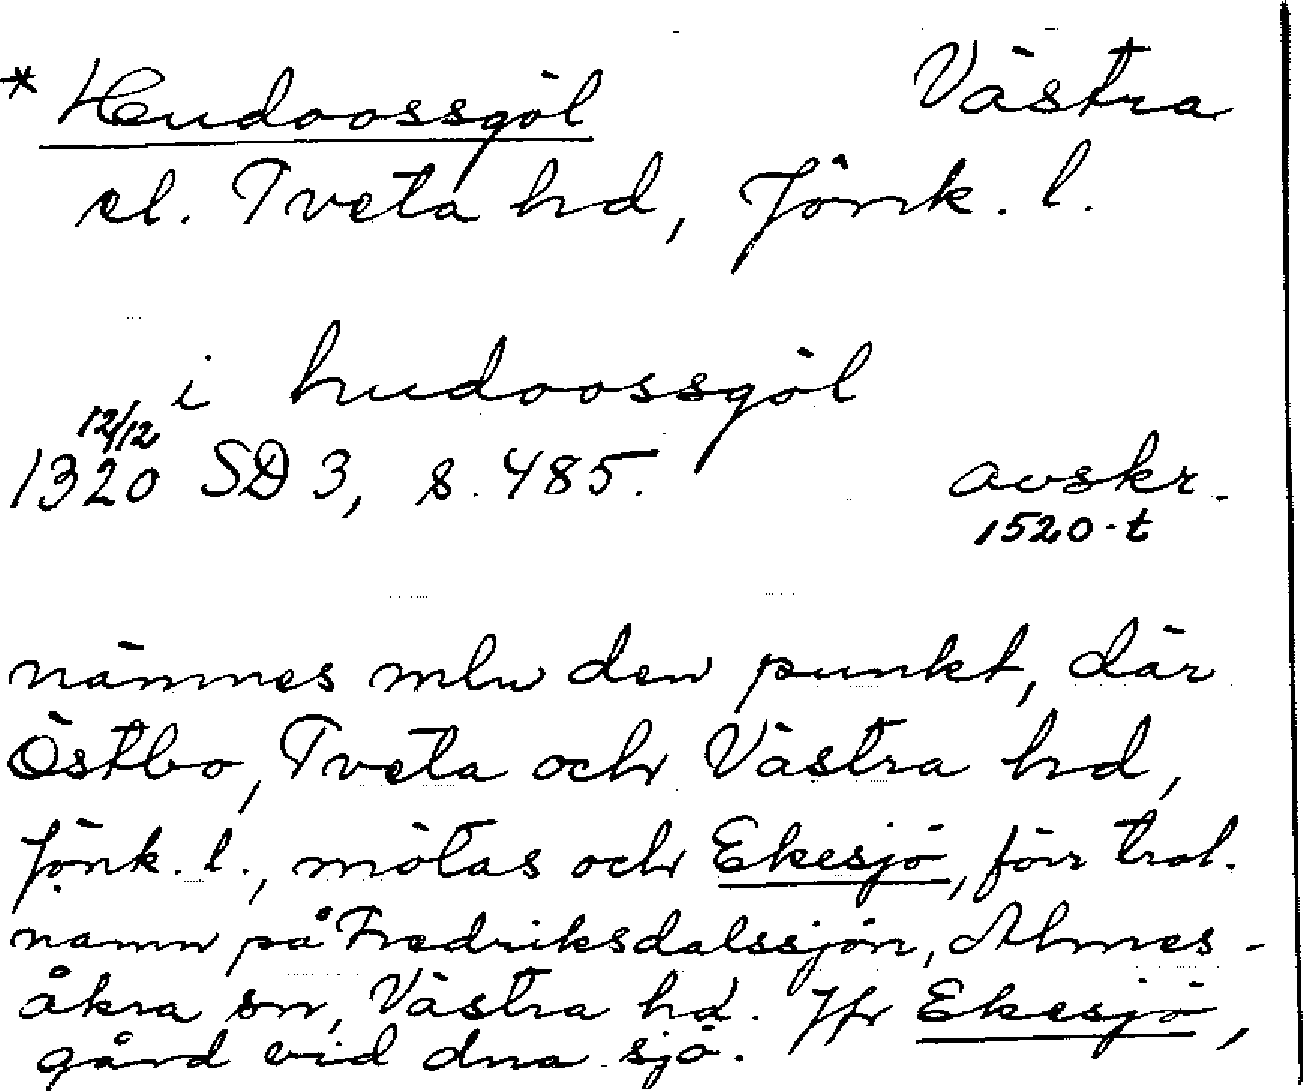 * Hudoossgöl Västra
el. Tveta hd, Jönk. l.
i hudoossgöl
12/12
1320 SD 3, s. 485. avskr.
1520-t
nämnes mln den punkt, där
Östbo, Tveta och Västra hd,
Jönk. l., mötas och Ekesjö, förr trol.
namn på Fredriksdalssjön, Almes-
åkra sn, Västra hd. Jfr Ekesjö,
gård vid dna sjö.